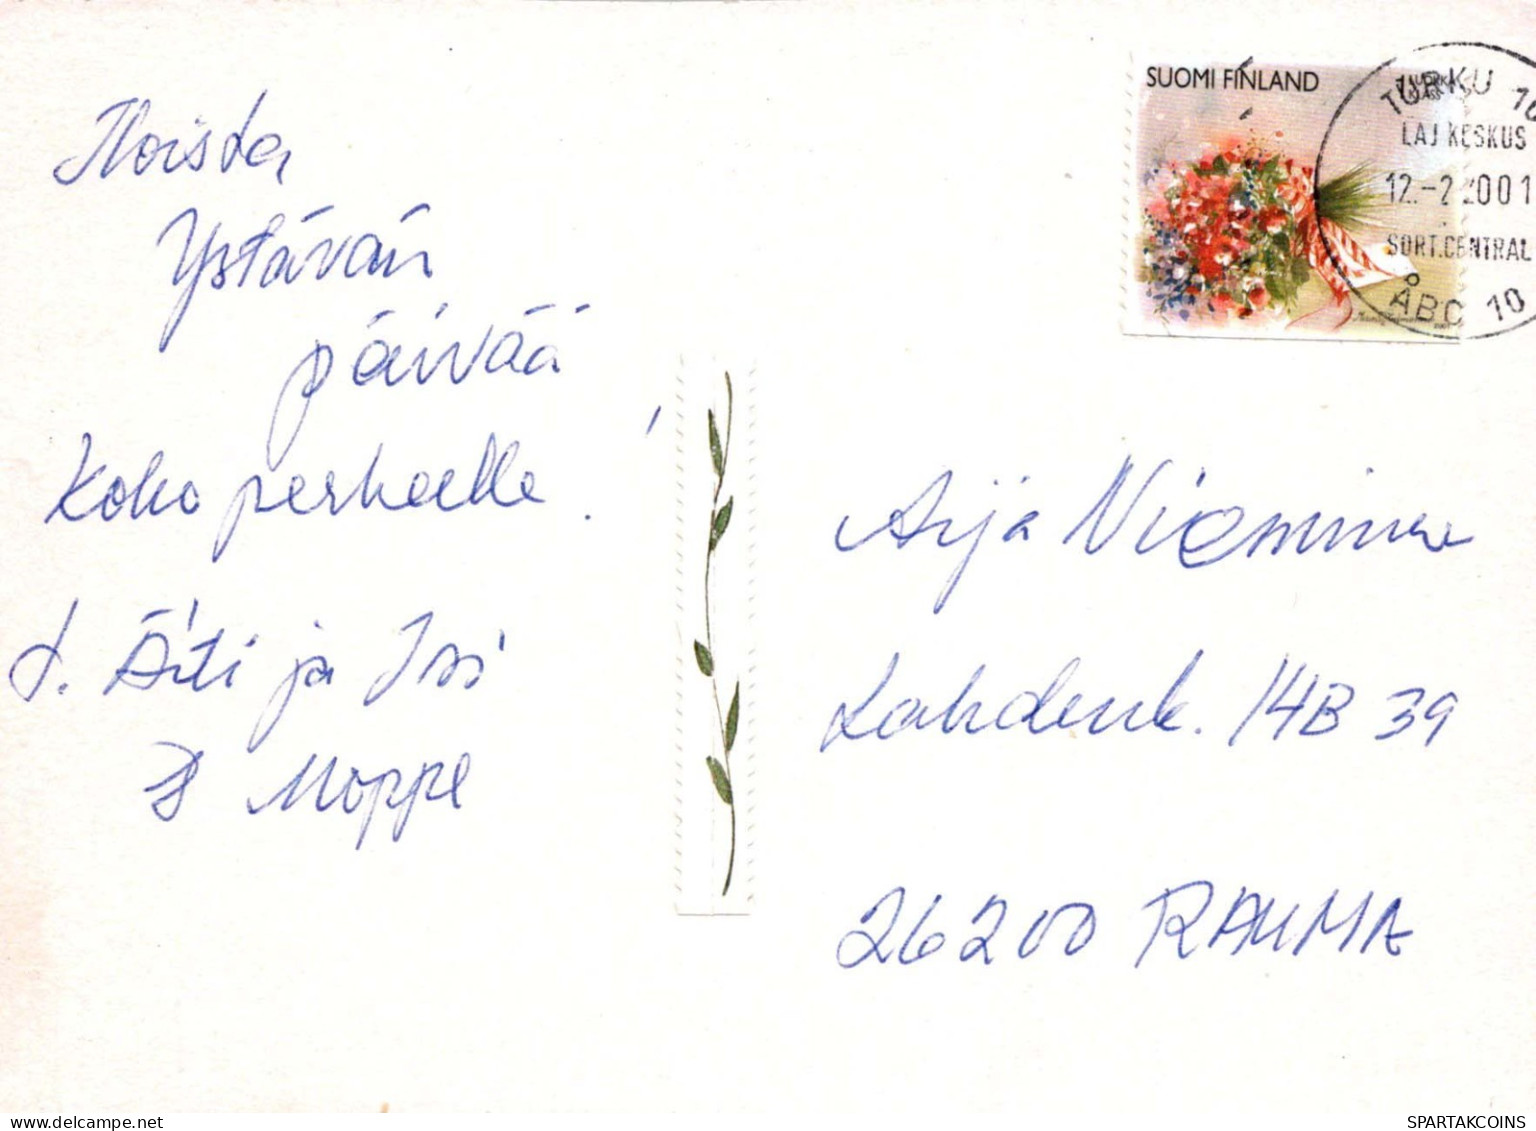 Iloista
Ystävän
päivää
Koko perheelle!
t. Äiti ja Isi
& Moppe
SUOMI FINLAND
TURKU 10
LAJ KESKUS
12.-2 2001
SORT.CENTRAL
ÅBO 10
Aija Nieminen
Lahdenk. 14B 39
26200 RAUMA
SPARTAKCOINS